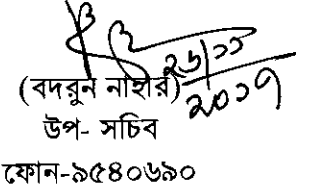 ২৬/১১
২০১৭
(বদরুন নাহার)
উপ- সচিব
ফোন-৯৫৪০৬৯০